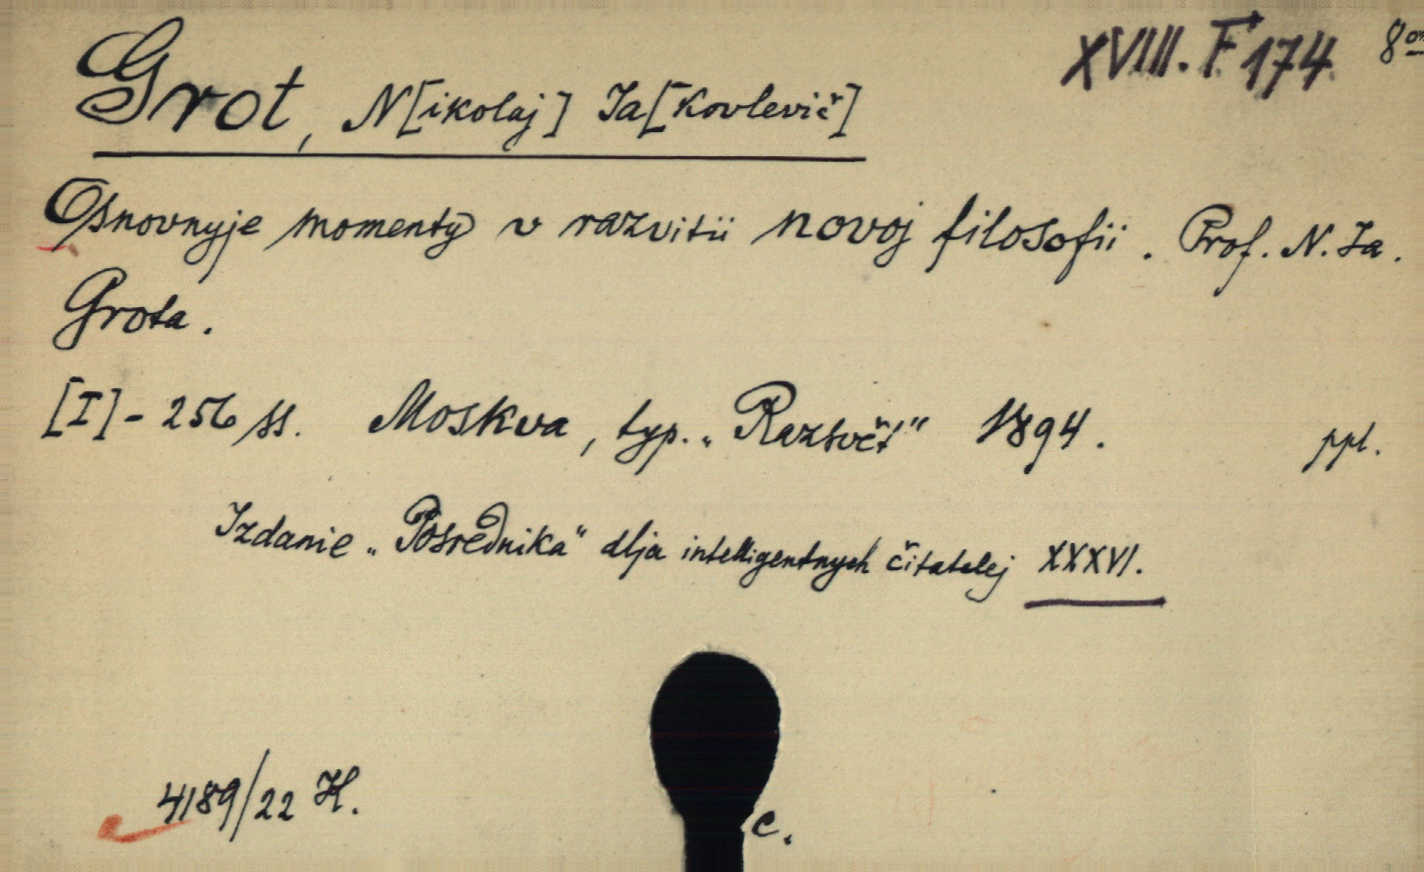 XVIII. F 174 8º
Grot, N[ikolaj] Ja[kovlevič]
Osnovnyje momenty v razvitii novoj filosofii. Prof. N. Ja.
Grota.
[I] - 256 ss. Moskva, typ. „Razsvět“ 1894. ppl.
Izdanie „Posrednika“ dlja intelligentnych čitatelej XXXVI.
4189/22 K.
c.